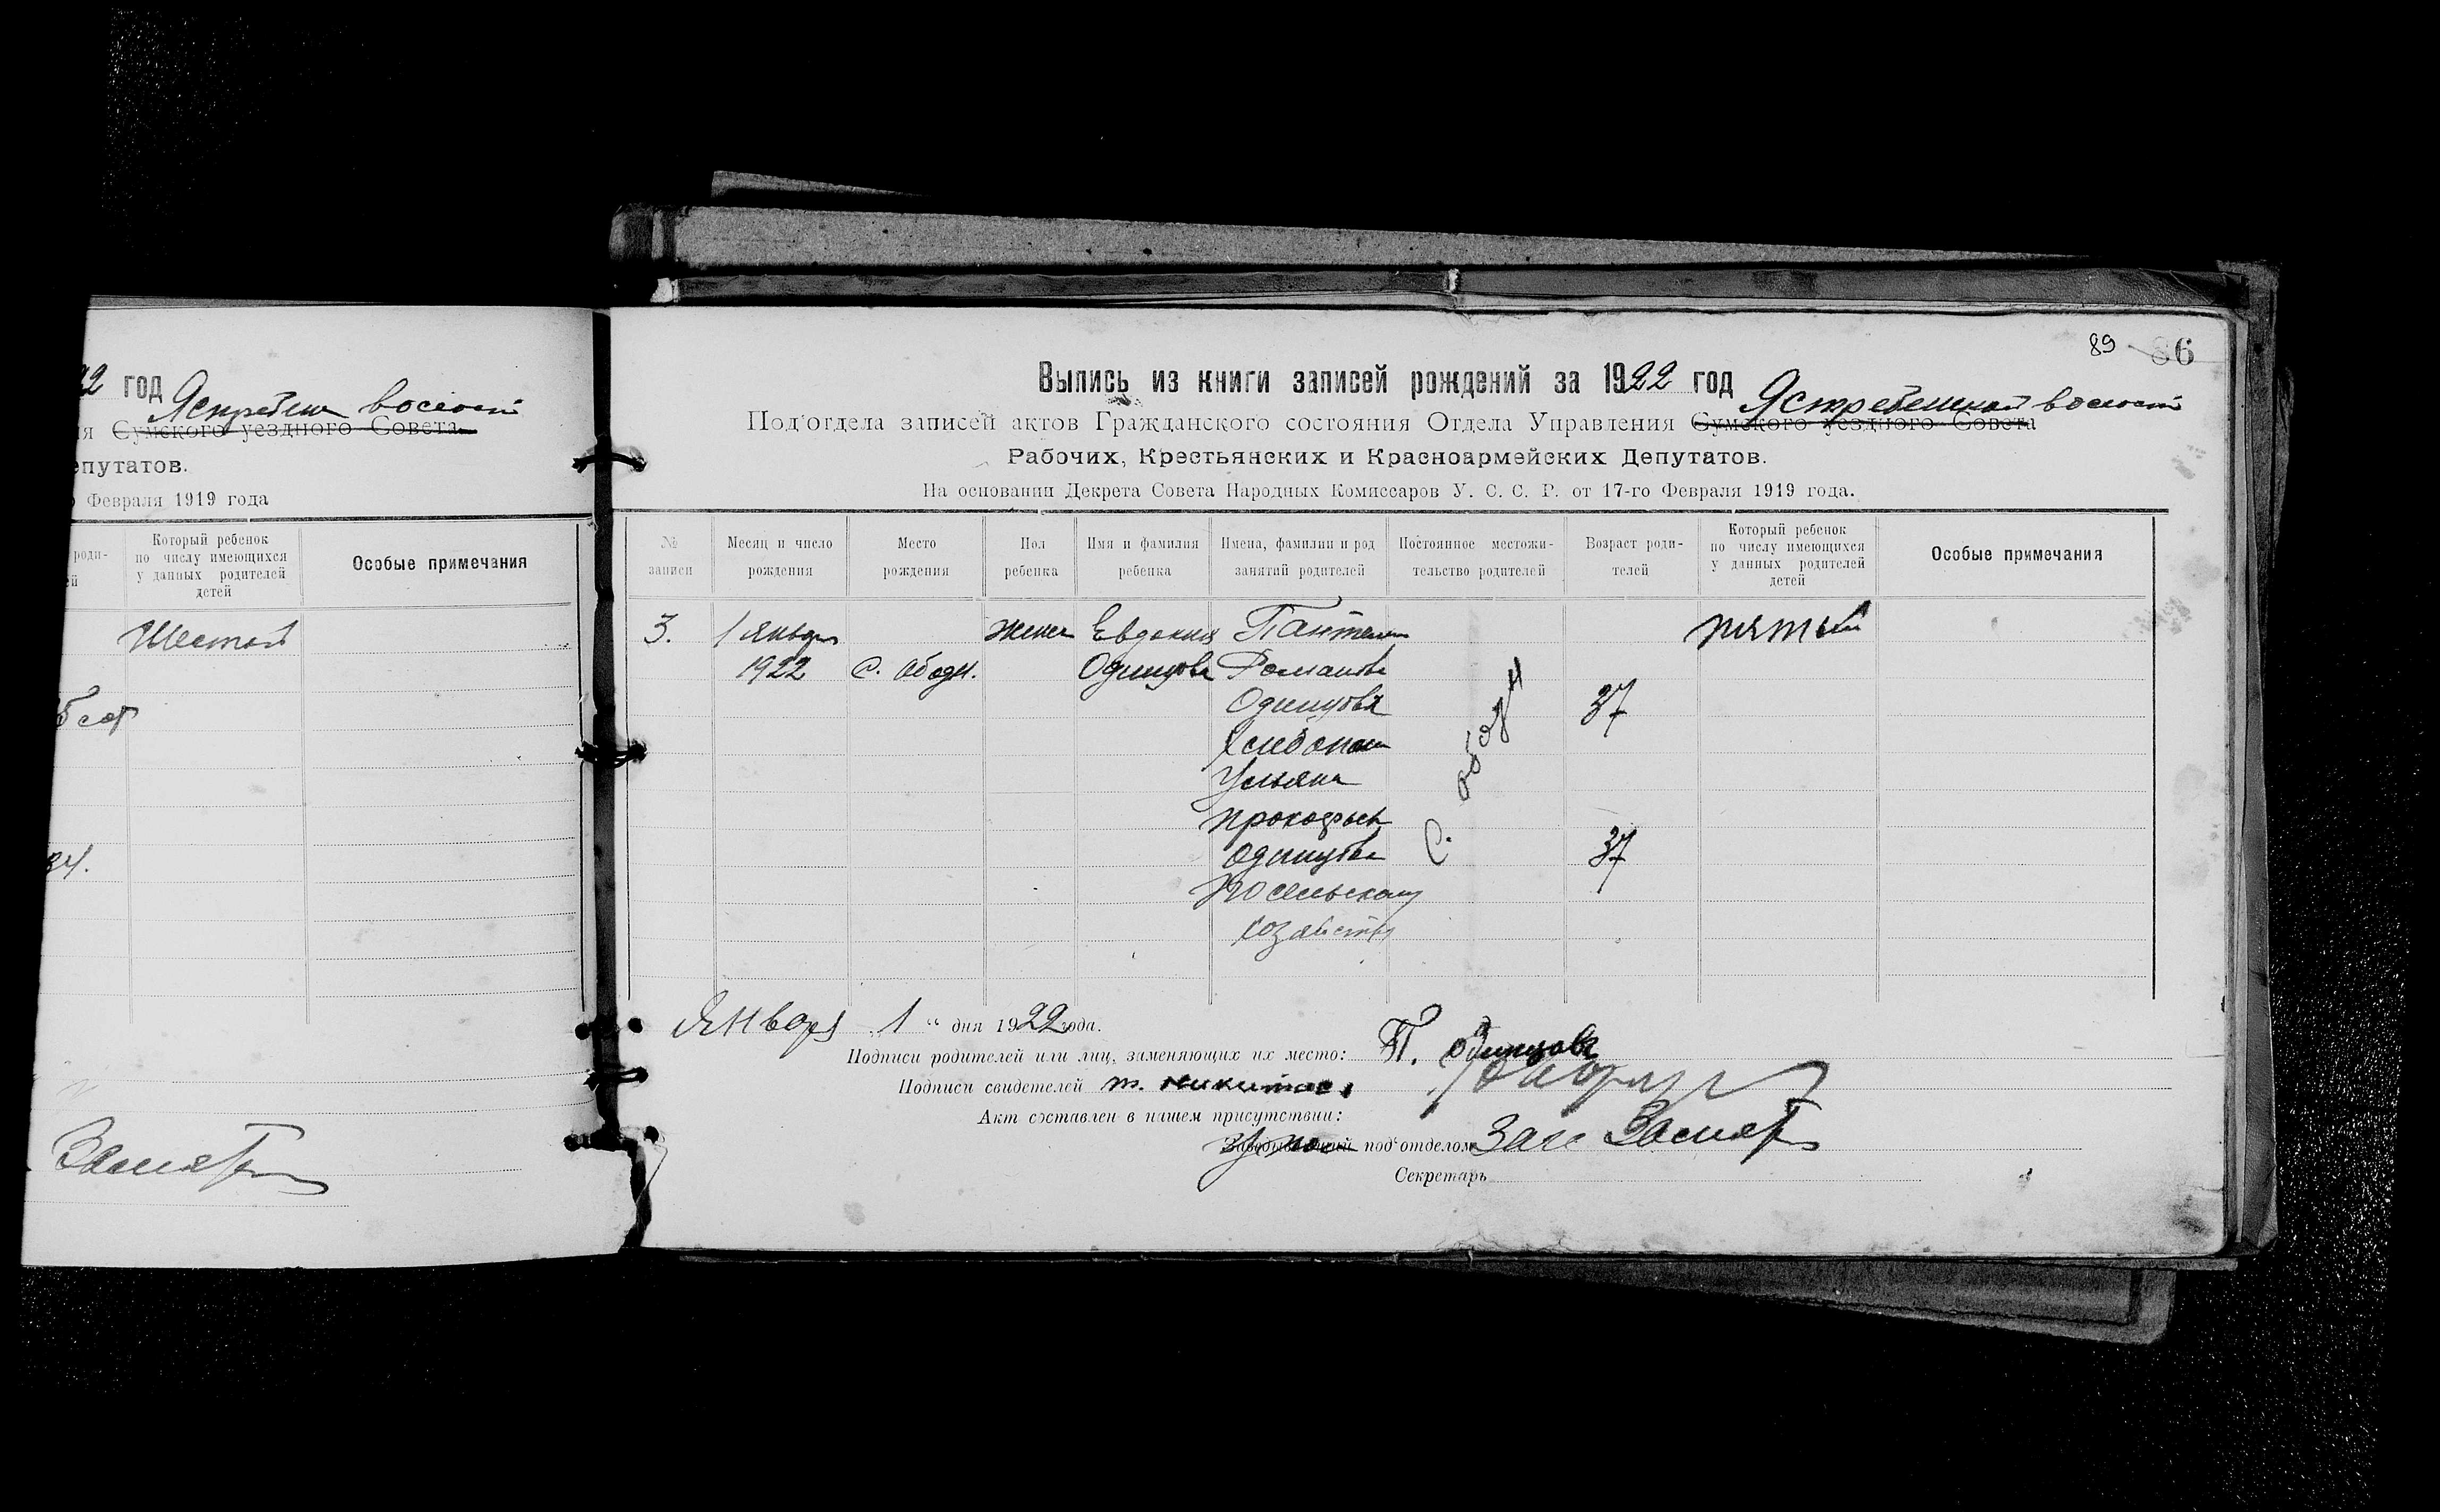 22 год Ястребен волости
ия Сумского уездного Совета
епутатов.
о Февраля 1919 года
роди-
ей
Который ребенок
по числу имеющихся
у данных родителей
детей
Особые примечания
Шестой
34.
89 86
Выпись из книги записей рождений за 1922 год
Ястребенной волости
Под'отдела записей актов Гражданского состояния Отдела Управления Сумского уездного Совета
Рабочих, Крестьянских и Красноармейских Депутатов.
На основании Декрета Совета Народных Комиссаров У. С. С. Р. от 17-го Февраля 1919 года.
№
записи
Месяц и число
рождения
Место
рождения
Пол
ребенка
Имя и фамилия
ребенка
Имена, фамилии и род
занятий родителей
Постоянное местожи-
тельство родителей
Возраст роди-
телей
Который ребенок
по числу имеющихся
у данных родителей
детей
Особые примечания
3.
1 января
1922
с. Ободы.
женс
Евдокия
Одинцова
Пантелеи
Романов
Одинцовъ
Хлебопаш
Ульяна
Прокофьев
Одинцова
по сельскому
хозяйству
с. Ободы
37
37
пятый
Января „ 1 “ дня 1922 года.
Подписи родителей или лиц, заменяющих их место: П. Одинцовъ
Подписи свидетелей
Акт составлен в нашем присутствии:
Заведывающий под'отделом
Секретарь